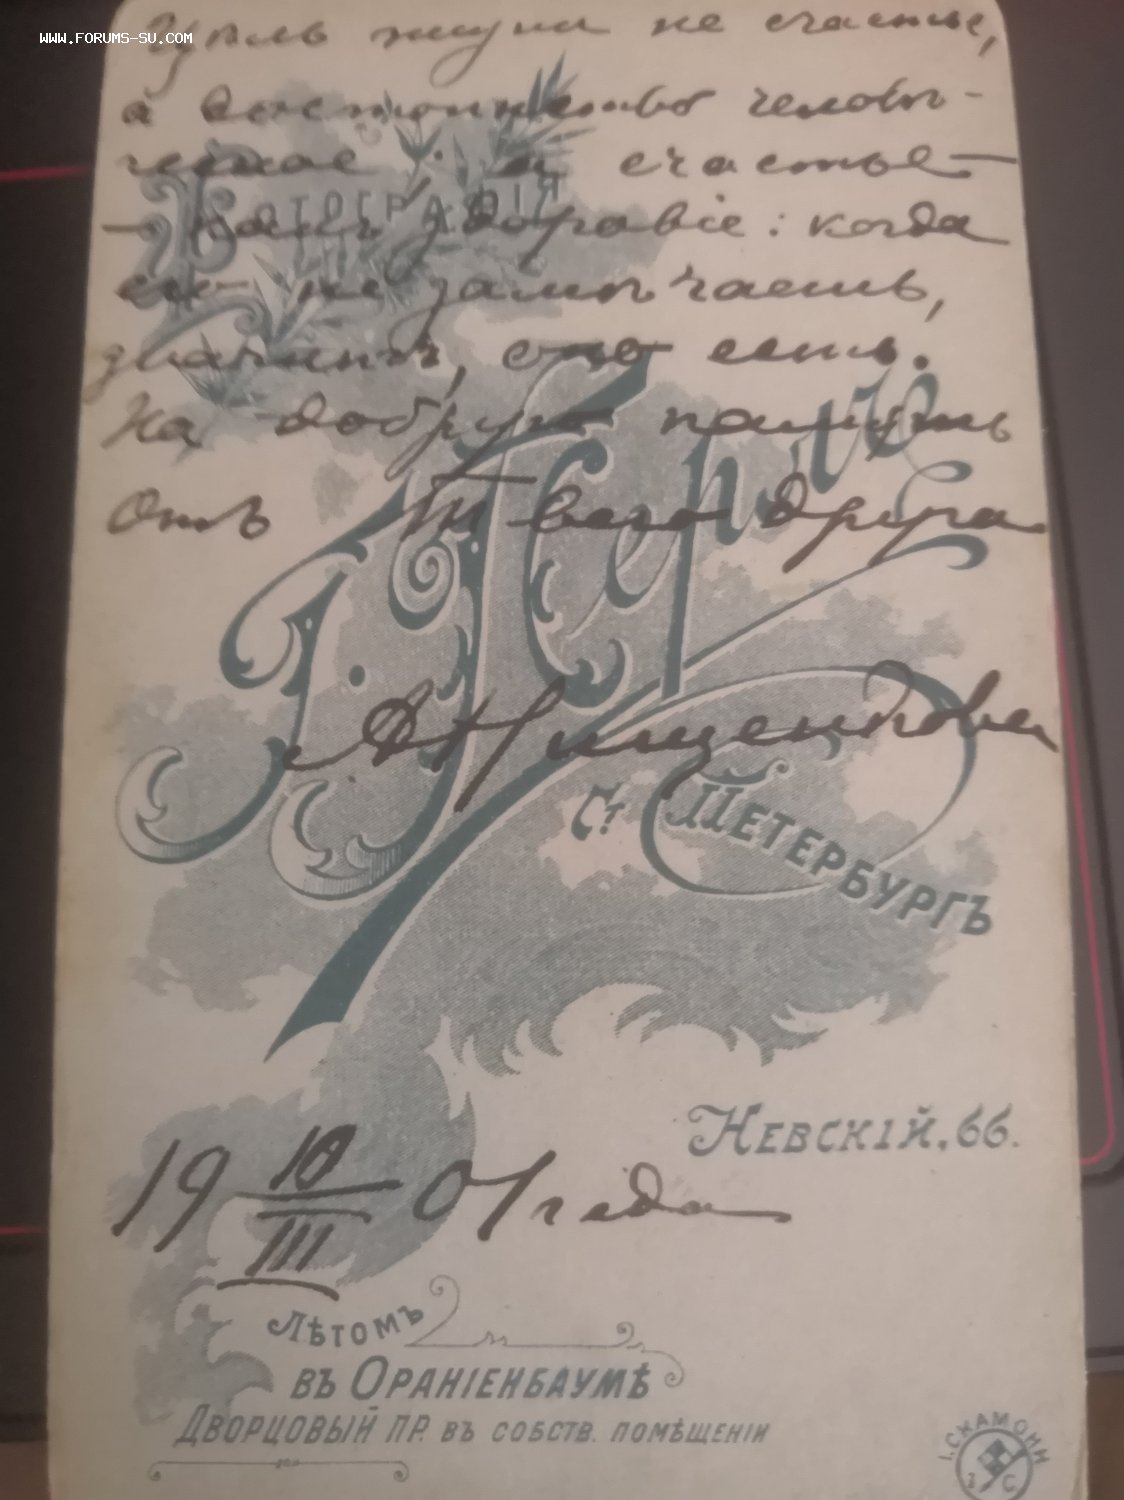 WWW.FORUMS-SU.COM
Цѣль жизни не счастье,
а достоинство человѣ-
ческое; а счастье —
— какъ здоровіе: когда
его не замѣчаешь,
значитъ, оно есть.
На добрую память
отъ Твоего друга
ФОТОГРАФІЯ
І. Перль
А Нищенкова
Ст Петербургъ
Невскій, 66.
19 10/III 01 года
Лѣтомъ
въ Ораніенбаумѣ
Дворцовый пр. въ собств. помѣщеніи
І. СКАМОНИ
З С